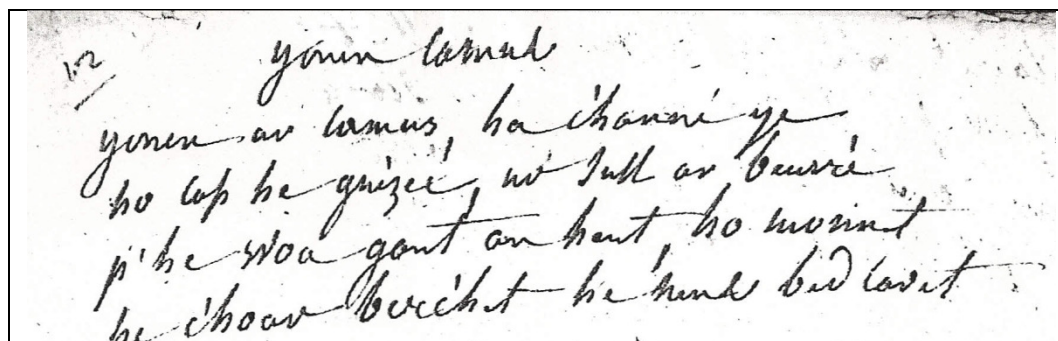 1.2
youen Camus
youen ar Camus, ha c'hanné ye
ho Cass he guézec, ur sull ar beuré
p'he woa gant an hent, ho monnet
he c'hoar berc'het he neus bed Cavet